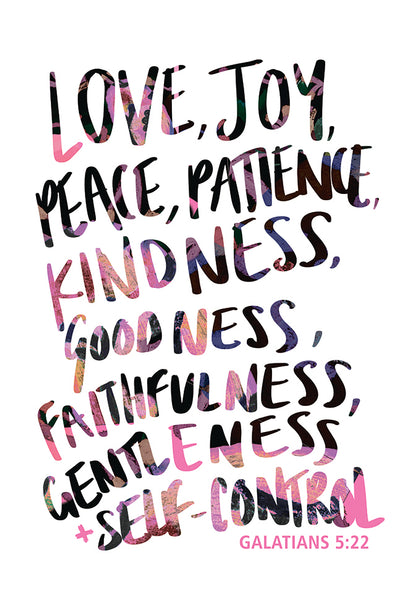 LOVE, JOY,
PEACE, PATIENCE,
KINDNESS,
GOODNESS,
FAITHFULNESS,
GENTLENESS
+ SELF-CONTROL
GALATIANS 5:22